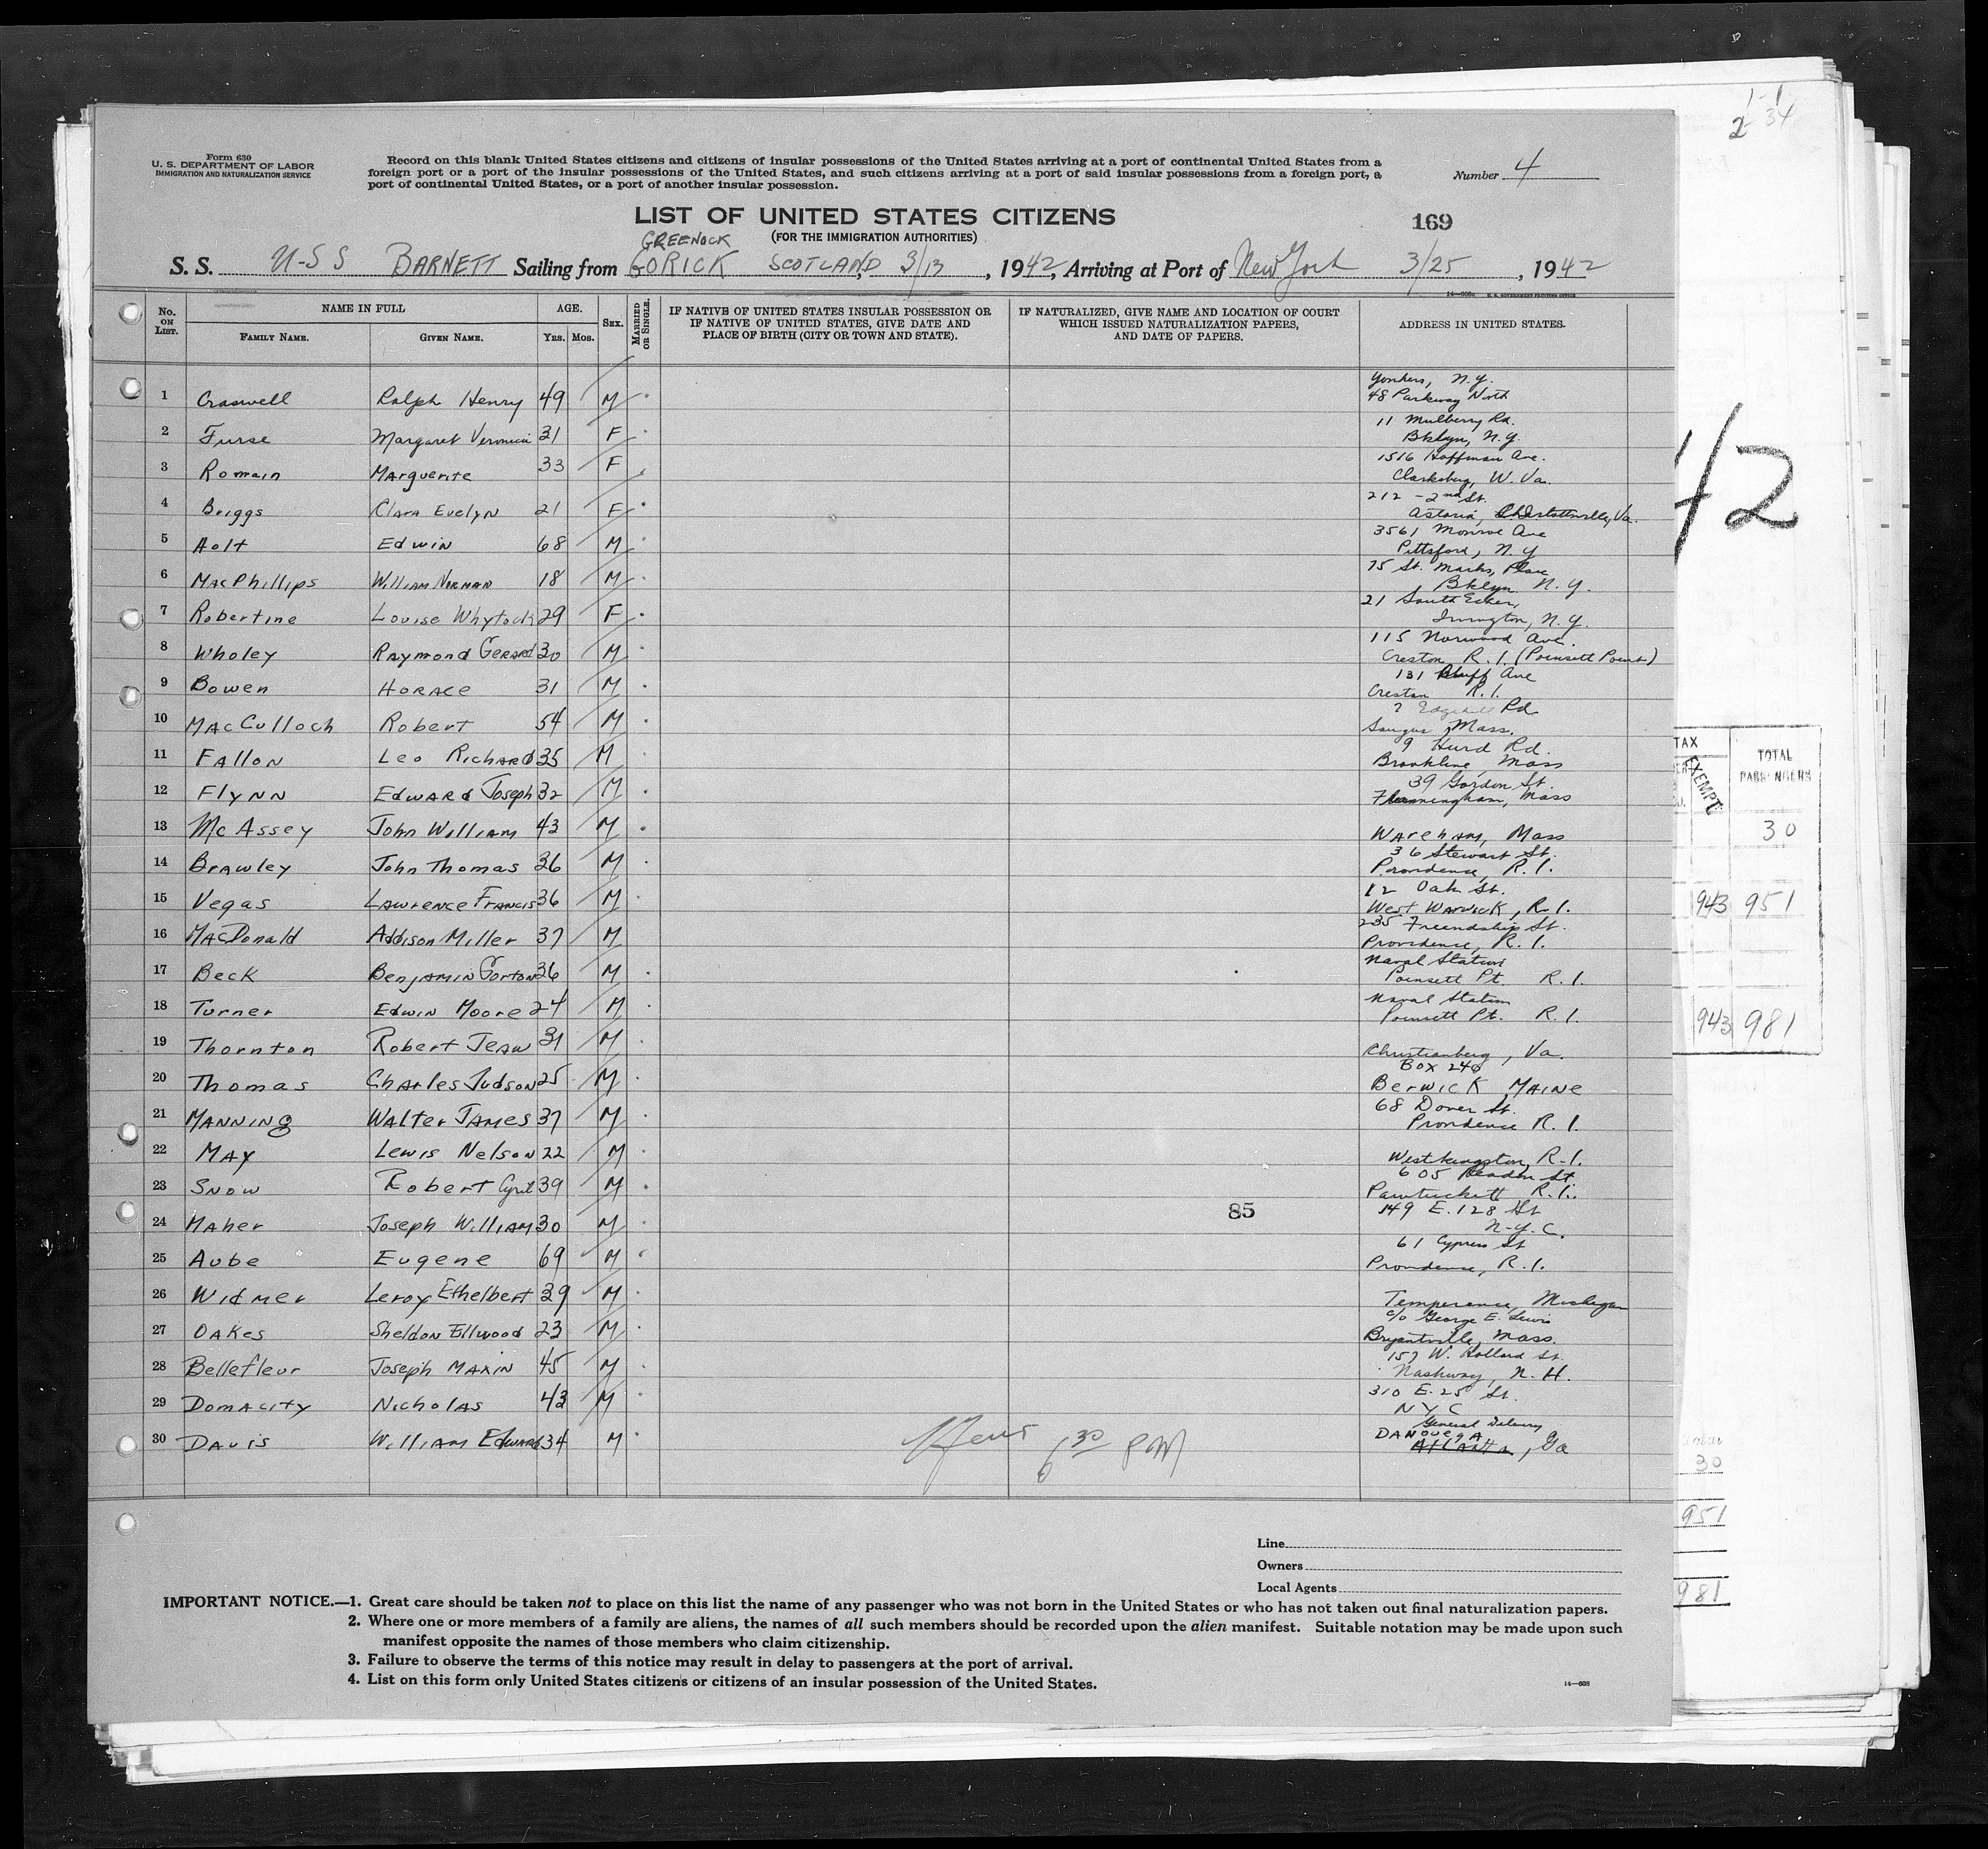 1-1
2-34
Form 630
U. S. DEPARTMENT OF LABOR
IMMIGRATION AND NATURALIZATION SERVICE
Record on this blank United States citizens and citizens of insular possessions of the United States arriving at a port of continental United States from a
foreign port or a port of the insular possessions of the United States, and such citizens arriving at a port of said insular possessions from a foreign port, a
port of continental United States, or a port of another insular possession.
Number 4
LIST OF UNITED STATES CITIZENS
169
(FOR THE IMMIGRATION AUTHORITIES)
GREENOCK
S. S. U-S S BARNETT Sailing from GORICK SCOTLAND 3/13, 1942, Arriving at Port of New York 3/25, 1942
No. ON LIST. NAME IN FULL AGE. SEX. MARRIED OR SINGLE. IF NATIVE OF UNITED STATES INSULAR POSSESSION OR IF NATIVE OF UNITED STATES, GIVE DATE AND PLACE OF BIRTH (CITY OR TOWN AND STATE). IF NATURALIZED, GIVE NAME AND LOCATION OF COURT WHICH ISSUED NATURALIZATION PAPERS, AND DATE OF PAPERS. ADDRESS IN UNITED STATES.
FAMILY NAME. GIVEN NAME. YRS. MOS.
Yonkers, N.Y.
1 Craswell Ralph Henry 49 M 48 Parkway North
11 Mulberry Rd.
2 Furse Margaret Veronica 31 F Bklyn, N.Y.
3 Romain Marguerite 33 F 1516 Hoffman Ave.
Clarksburg, W. Va.
212 - 2nd St.
4 Briggs Clara Evelyn 21 F Astoria, Charlottesville, Va.
3561 Monroe Ave
5 Holt Edwin 68 M Pittsford, N.Y
75 St. Marks, Place
6 MacPhillips William Norman 18 M Bklyn N.Y.
21 South Ecker,
7 Robertine Louise Whytock 29 F Irvington, N.Y.
115 Norwood Ave.
8 Wholey Raymond Gerard 30 M Creston R.I. (Poinsett Point)
131 Bluff Ave
9 Bowen Horace 31 M Creston R.I.
7 Edgehill Rd
10 MacCulloch Robert 54 M Saugus, Mass.
9 Hurd Rd.
11 Fallon Leo Richard 35 M Brookline Mass
39 Gordon St.
12 Flynn Edward Joseph 32 M Framningham, Mass
13 McAssey John William 43 M Wareham, Mass
36 Stewart St.
14 Brawley John Thomas 26 M Providence, R.I.
12 Oak St.
15 Vegas Lawrence Francis 36 M West Warwick, R.I.
235 Friendship St.
16 MacDonald Addison Miller 37 M Providence, R.I.
Naval Station
17 Beck Benjamin Gorton 26 M Poinsett Pt. R.I.
Naval Station
18 Turner Edwin Moore 24 M Poinsett Pt. R.I.
19 Thornton Robert Jean 31 M Christianberg, Va.
Box 240
20 Thomas Charles Judson 25 M Berwick Maine
68 Dover St.
21 Manning Walter James 37 M Providence R.I.
22 May Lewis Nelson 22 M West Kingston, R.I.
605 St.
23 Snow Robert Cyril 39 M Pawtuckett R.I.
149 E. 128 St
24 Maher Joseph William 30 M 85 N.Y.C.
61 Cypress St
25 Aube Eugene 69 M Providence, R.I.
26 Widmer Leroy Ethelbert 39 M Temperance, Michigan
c/o George E. Lewis
27 Oakes Sheldon Ellwood 23 M Bryantville, Mass.
157 W. Hollard St.
28 Bellefleur Joseph Maxin 45 M Nashway, N.H.
310 E. 25 St.
29 Domacity Nicholas 43 M NYC
General Delivery
30 Davis William Edward 34 M Atlanta, Ga
6 30 PM
Line
Owners
Local Agents
IMPORTANT NOTICE.—1. Great care should be taken not to place on this list the name of any passenger who was not born in the United States or who has not taken out final naturalization papers.
2. Where one or more members of a family are aliens, the names of all such members should be recorded upon the alien manifest. Suitable notation may be made upon such
manifest opposite the names of those members who claim citizenship.
3. Failure to observe the terms of this notice may result in delay to passengers at the port of arrival.
4. List on this form only United States citizens or citizens of an insular possession of the United States.
42
TAX
EXEMPT
TOTAL
PASSENGERS
30
943 951
943 981
30
951
981